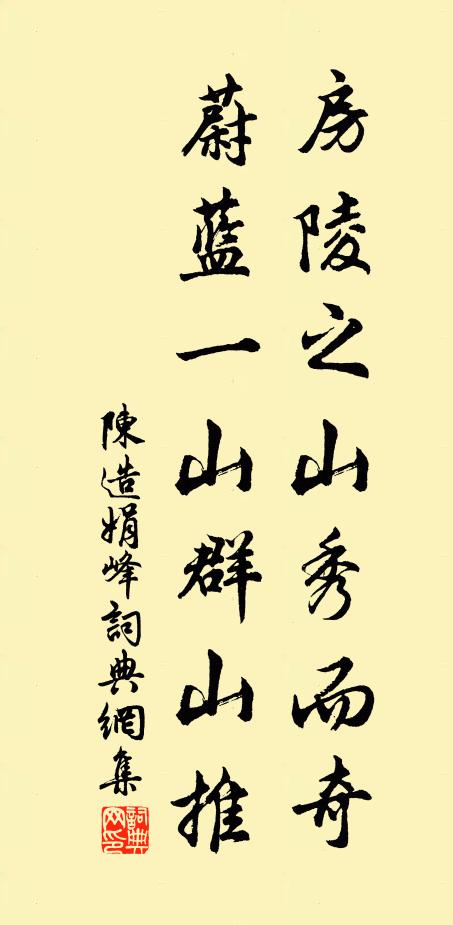 房陵之山秀而奇
蔚藍一山群山推
陳造娟峰詞典網集
詞典網印